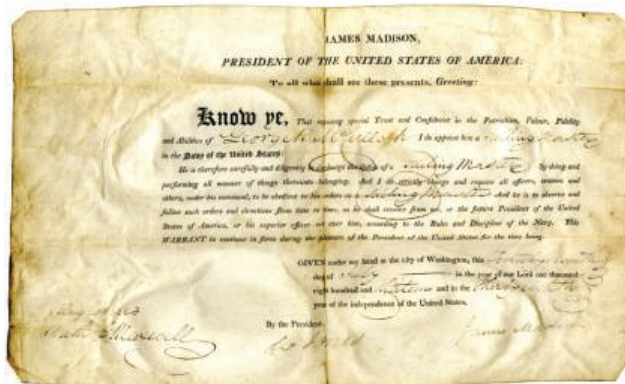 JAMES MADISON,
PRESIDENT OF THE UNITED STATES OF AMERICA:
To all who shall see these presents, Greeting:
Know ye, That reposing special Trust and Confidence in the Patriotism, Valour, Fidelity
and Abilities of I do appoint him a Sailing Master
in the Navy of the United States:
He is therefore carefully and diligently to discharge the duties of a Sailing Master By doing and
performing all manner of things thereunto belonging. And I do strictly charge and require all officers, seamen and
others, under his command, to be obedient to his orders as a Sailing Master And he is to observe and
follow such orders and directions from time to time, as he shall receive from me, or the future President of the United
States of America, or his superior officer set over him, according to the Rules and Discipline of the Navy. This
WARRANT to continue in force during the pleasure of the President of the United States for the time being.
GIVEN under my hand at the city of Washington, this
day of in the year of our Lord one thousand
eight hundred and and in the
year of the independence of the United States.
By the President.
James Madison